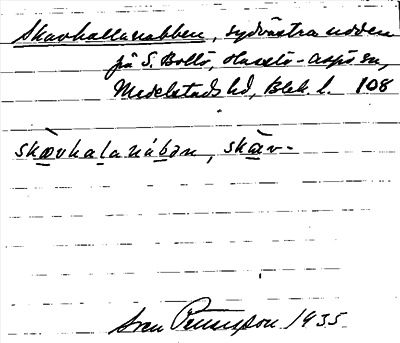 Skavhallanabben, sydvästra udden
på S. Bollö, Hasslö-Aspö sn,
Medelstads hd, Blek. l. 108
skævhalanábən, skæv-
Sven Petersson 1935.